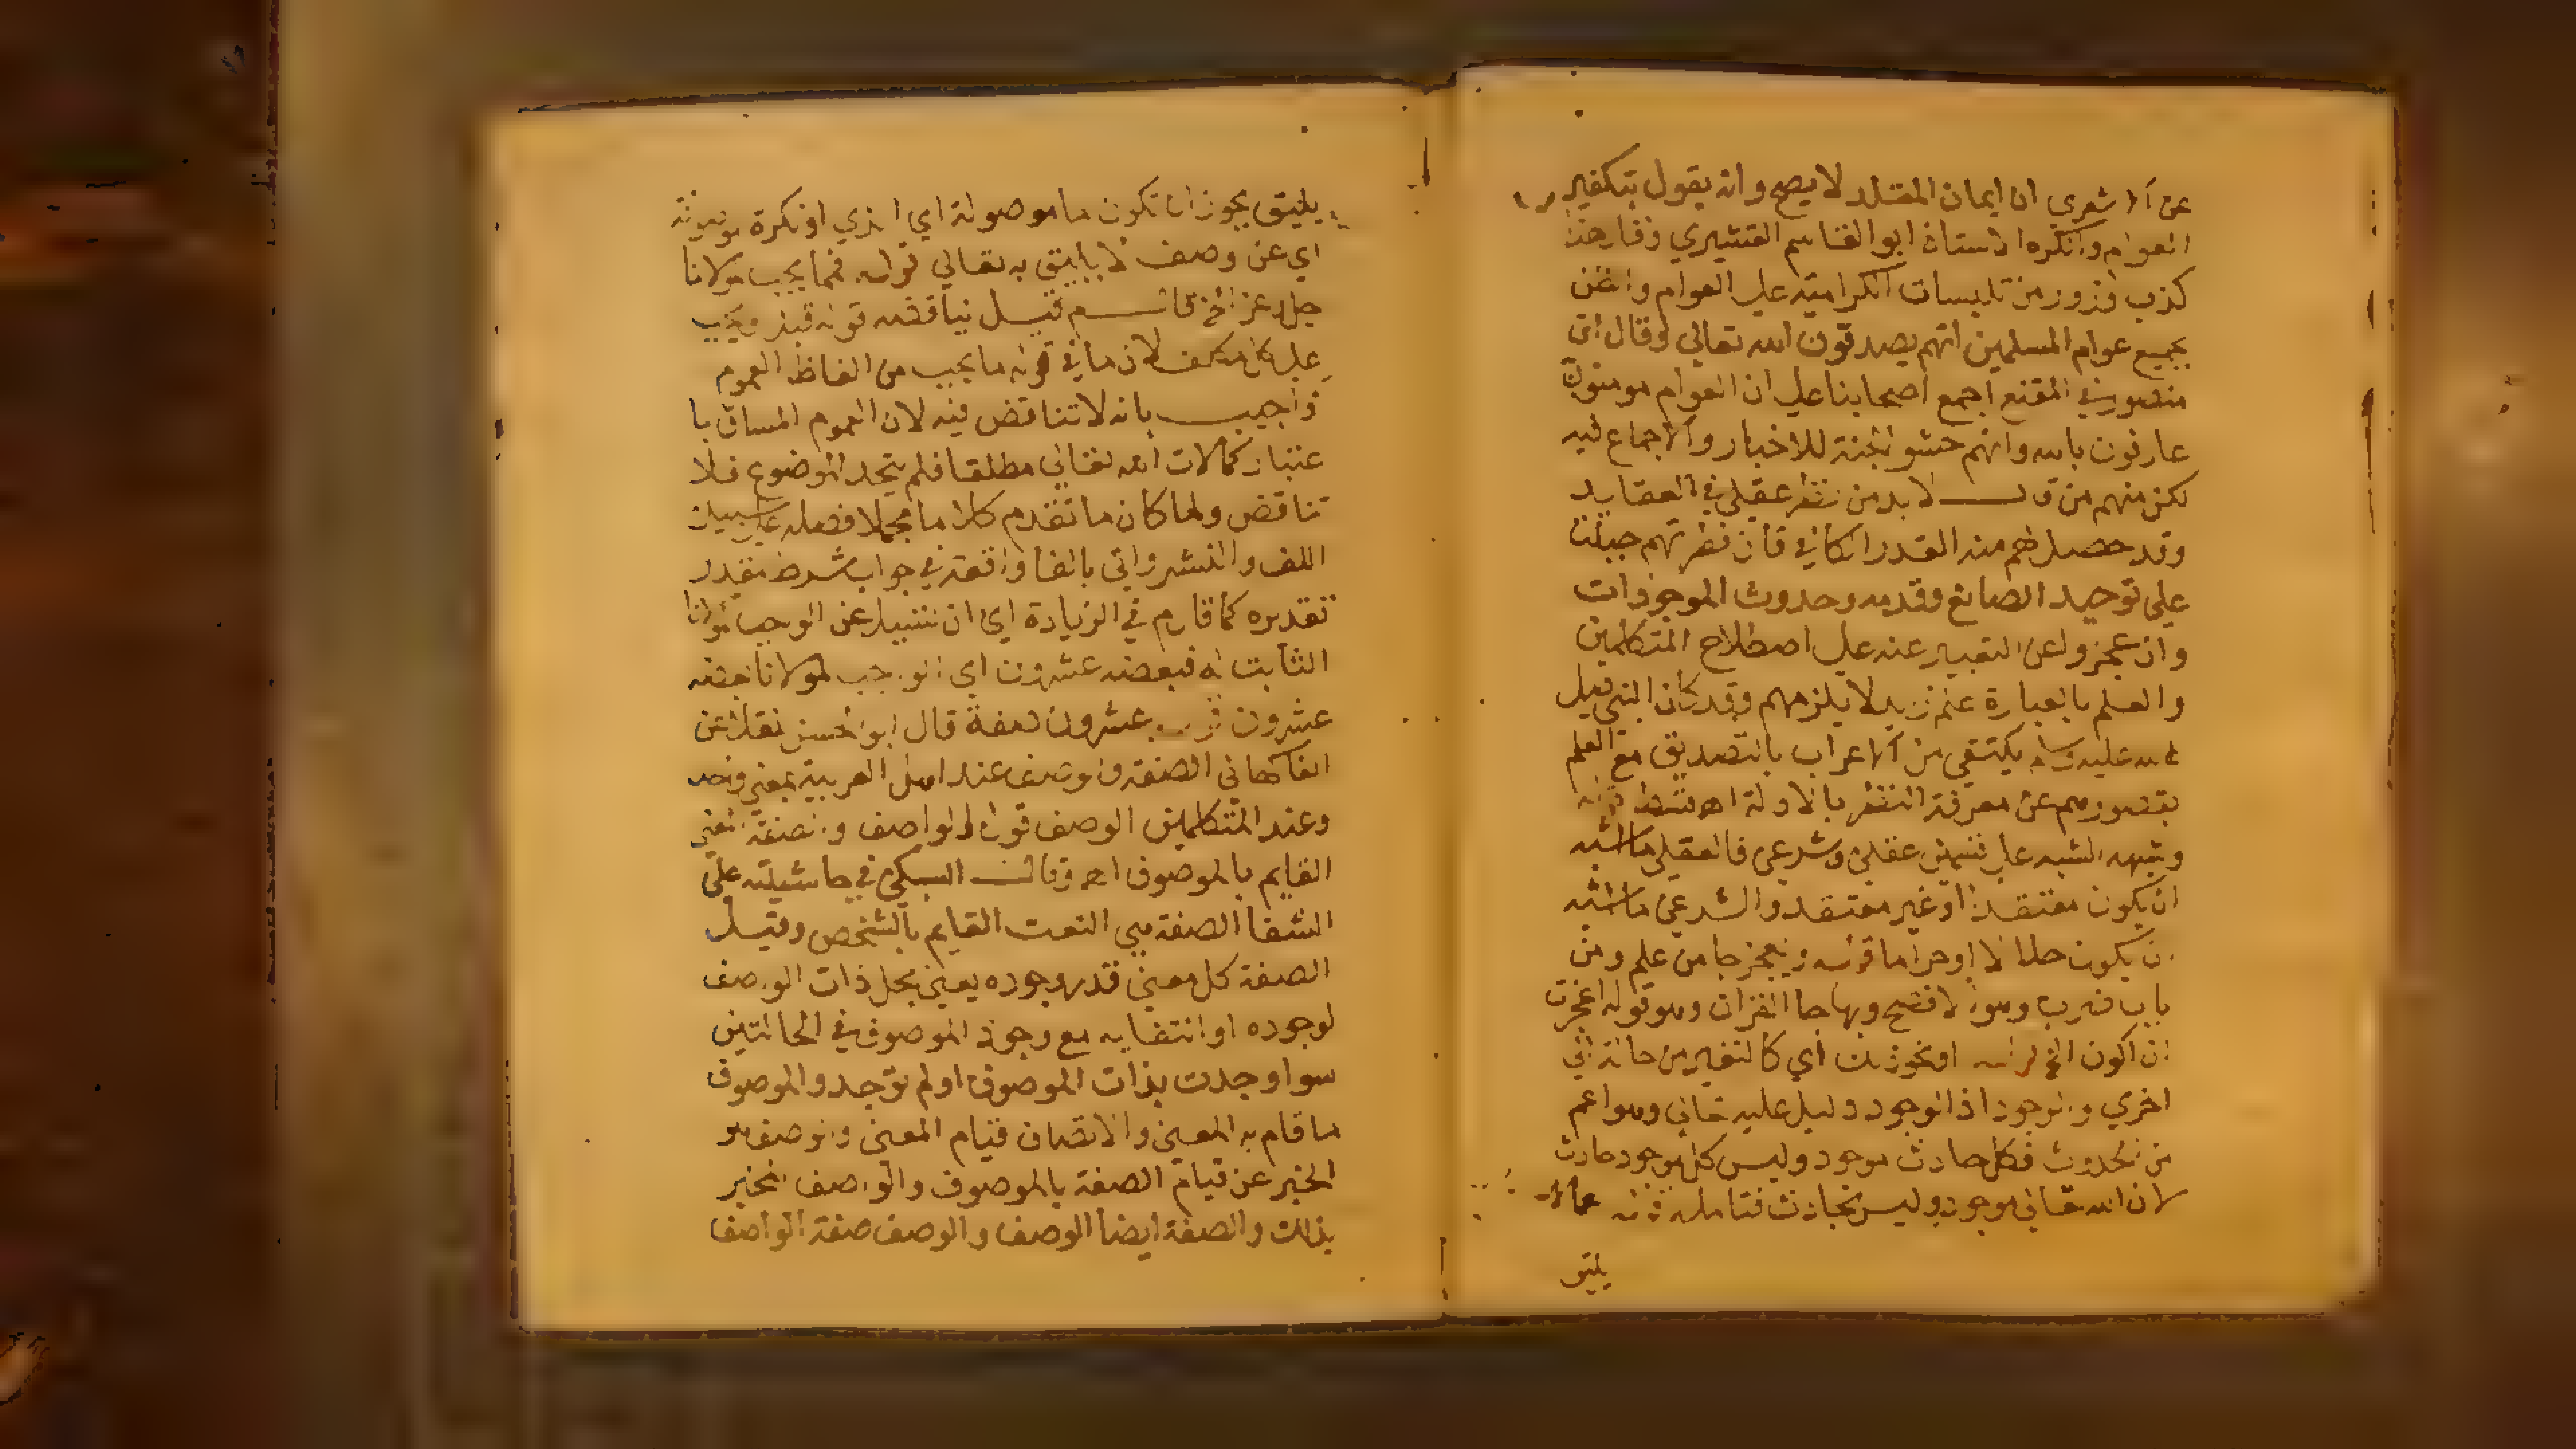 عن الاشعري ان ايمان المقلد لا يصح وانه يقول بتكفير
العوام وانكره الاستاذ ابو القاسم القشيري وقال هذا
كذب وزور من تلبيسات الكرامية على العوام والظن
بجميع عوام المسلمين انهم يصدقون الله تعالي وقال ابو
منصور في المقنع اجمع اصحابنا علي ان العوام مومنون
عارفون بالله وانهم حشو الجنة للاخبار والاجماع فيه
لكن منهم من قال لا بد من نظر عقلي في العقايد
وقد حصل لهم منه القدر الكافي فان فطرتهم جبلت
علي توحيد الصانع وقدمه وحدوث الموجودات
وان عجزوا عن التعبير عنه علي اصطلاح المتكلمين
والعلم بالعبارة علم زيد لا يلزمهم وقد كان النبي صلي
الله عليه وسلم يكتفي من الاعراب بالتصديق مع العلم
بقصورهم عن معرفة النظر بالادلة اهـ قوله
علي قسمين عقلي وشرعي فالعقلي
ان يكون معتقدا او غير معتقد والشرعي
ان يكون حلالا او حراما قوله ويعجز جا من علم ومن
باب ضرب وهو الافصح وبها جا القران وهو قوله اعجزت
ان اكون الخ قوله او نحو ذلك اي كالتغير من حالة الي
اخري والوجود اذ الوجود دليل عليه تعالي وهو اعم
من الحدوث فكل حادث موجود وليس كل موجود حادث
لان الله تعالي موجود وليس بحادث فتامله قوله عما لا
يليق
يليق يجوز ان تكون ما موصولة اي الذي او نكرة موصوفة
اي عن وصف لا يليق به تعالي قوله فمما يجب لمولانا
جل وعز الخ قيل يناقضه قوله قبل ويجب
علي كل مكلف لان ما في قوله ما يجب من الفاظ العموم
واجيب بانه لا تناقض فيه لان العموم المساق با
عتبار كمالات الله تعالي مطلقا فلم يتحد الموضوع فلا
تناقض ولما كان ما تقدم كلاما مجملا فصله علي سبيل
اللف والنشر واتي بالفا واقعة في جواب شرط مقدر
تقديره كما قال م في الزيادة اي ان تسيل عن الواجب لمولانا
الثابت له فبعضه عشرون اي الواجب لمولانا بعضه
عشرون عشرون صفة قال ابو الحسن نقلا عن
الفاكهاني الصفة والوصف عند اهل العربية بمعني واحد
وعند المتكلمين الوصف قول الواصف والصفة المعني
القايم بالموصوف اهـ وقال السبكي في حاشيته علي
الشفا الصفة هي النعت القايم بالشخص وقيل
الصفة كل معني قدر وجوده يعني بمحل ذات الوصف
لوجوده او انتفايه مع وجود الموصوف في الحالتين
سوا وجدت بذات الموصوف او لم توجد والموصوف
ما قام به المعني والاتصاف قيام المعني والوصف هو
الخبر عن قيام الصفة بالموصوف والواصف المخبر
بذلك والصفة ايضا الوصف والوصف صفة الواصف